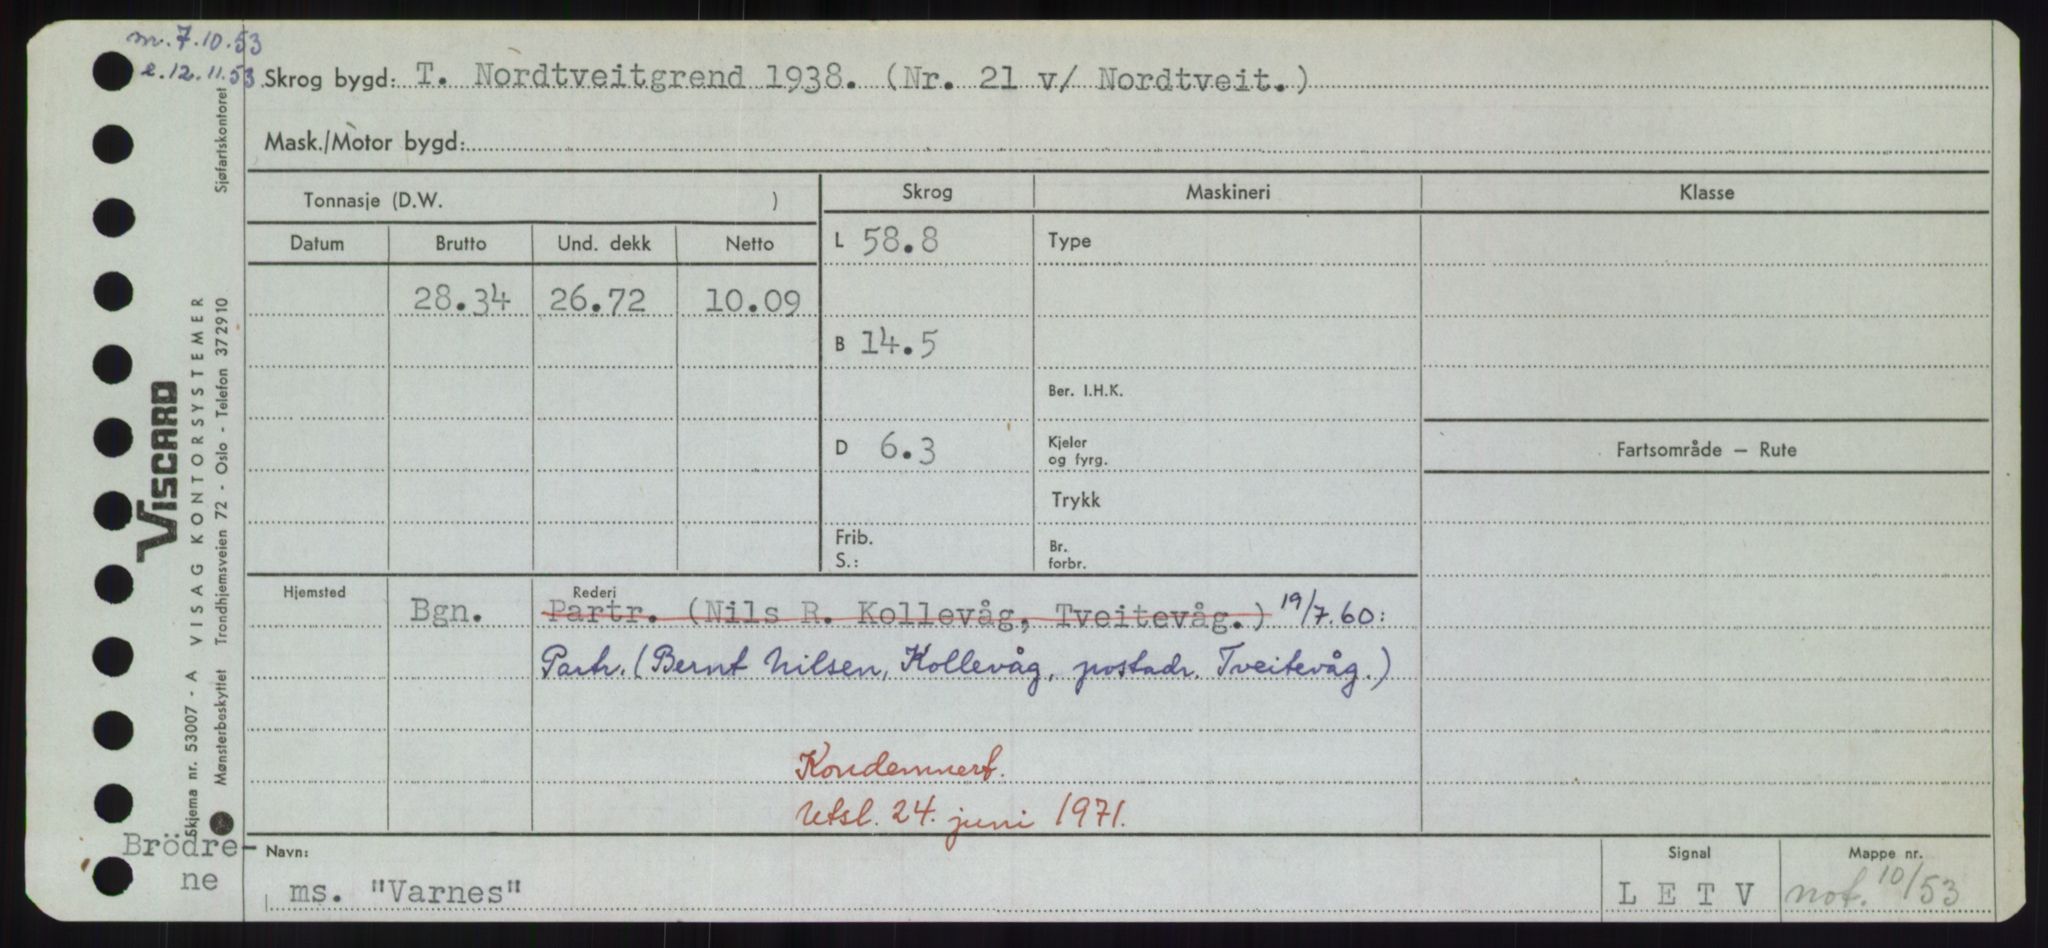 m. 7.10.53
e. 12.11.53
Skrog bygd: T. Nordtveitgrend 1938. (Nr. 21 v/ Nordtveit.)
Mask./Motor bygd:
Tonnasje (D.W. )
Skrog
Maskineri
Klasse
Datum Brutto Und. dekk Netto
L 58.8
Type
28.34 26.72 10.09
B 14.5
Ber. I.H.K.
D 6.3
Kjeler
og fyrg.
Fartsområde — Rute
Trykk
Frib.
S.:
Br.
forbr.
Hjemsted
Rederi
Bgn. Partr. (Nils R. Kollevåg, Tveitevåg.) 19/7.60:
Partr. (Bernt Nilsen, Kollevåg, postadr. Tveitevåg.)
Kondemnert.
Utsl. 24. juni 1971.
Brödre-
ne
Navn:
ms. "Varnes"
Signal
L E T V
Mappe nr.
not. 10/53
VISCARD
Skjema nr. 53007 - A VISAG KONTORSYSTEMER
Mønsterbeskyttet Trondhjemsveien 72 - Oslo - Telefon 372910 Sjøfartskontoret